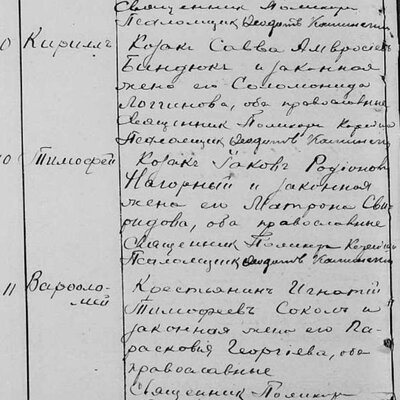 Священникъ Поликарпъ
Псаломщикъ Феодотъ Каминскій
0 Кириллъ
Козакъ Савва Амвросіевъ
Биндюкъ и законная
жена его Соломонида
Логгинова, оба православные
Священникъ Поликарпъ
Псаломщикъ Феодотъ Каминскій
10 Тимофей
Козакъ Іаковъ Родіоновъ
Нагорный и законная
жена его Матрона Сви-
ридова, оба православные
Священникъ Поликарпъ
Псаломщикъ Феодотъ Каминскій
11 Варфоло-
мей
Крестьянинъ Игнатій
Тимофеевъ Соколъ и
законная жена его Па-
расковія Георгіева, оба
православные
Священникъ Поликарпъ